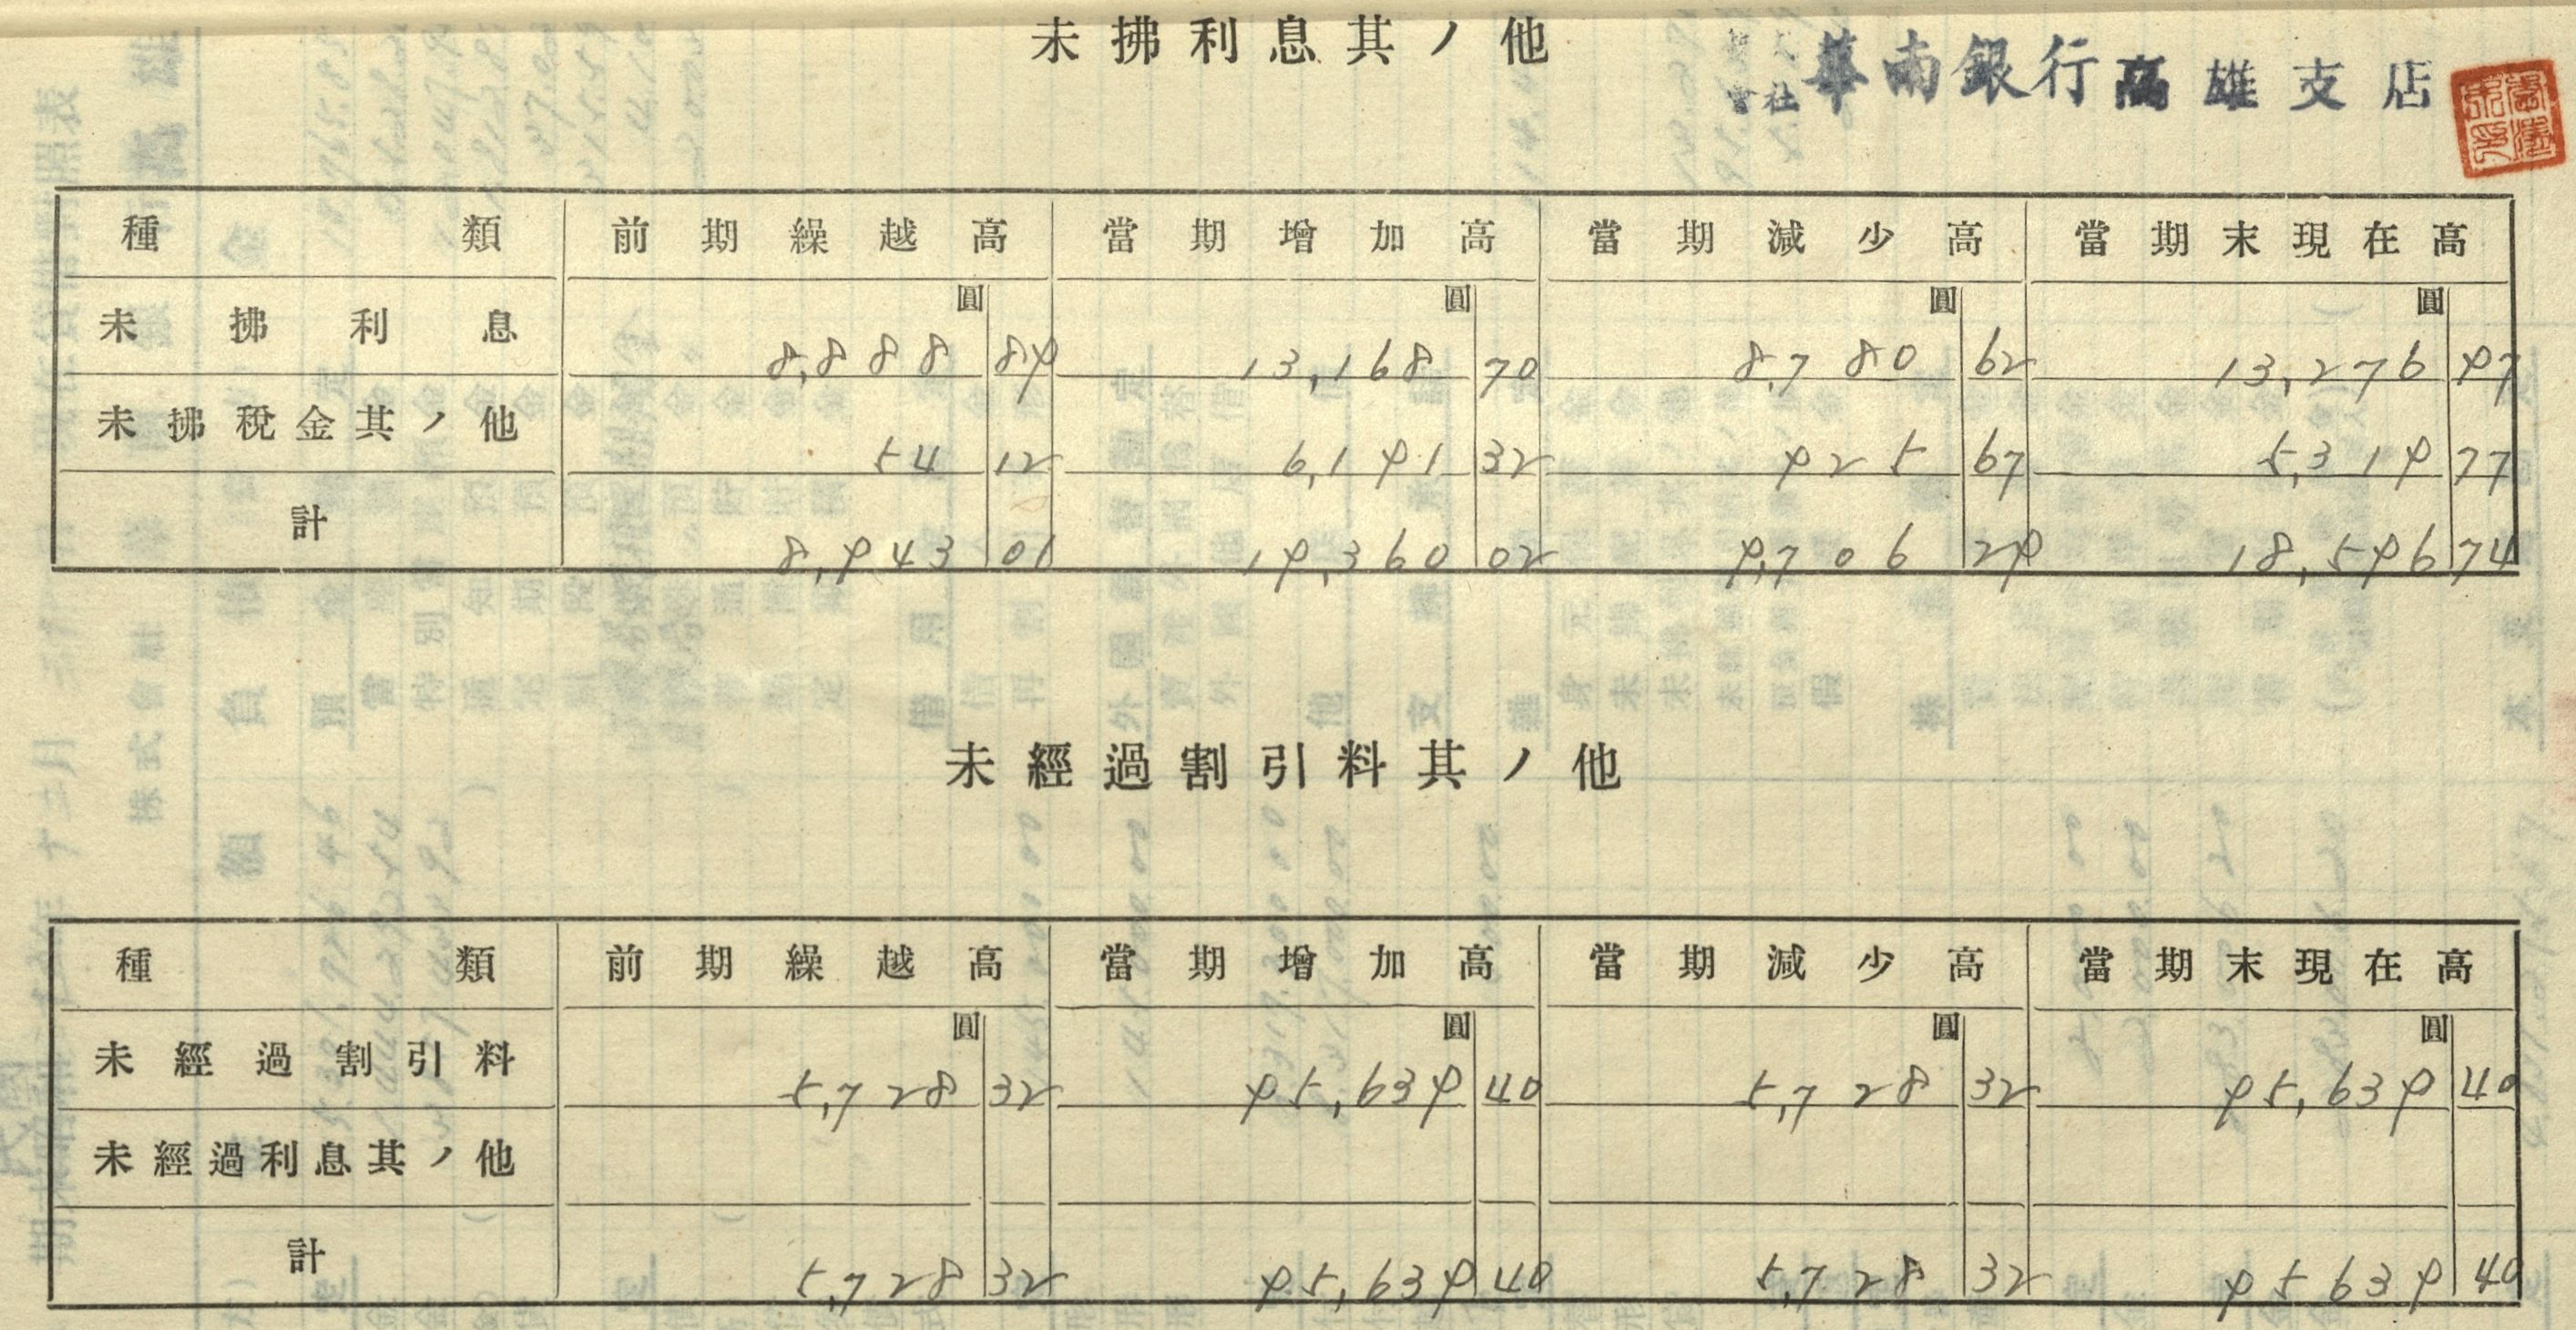 未拂利息其ノ他
株式會社 華南銀行高雄支店
種類 前期繰越高 當期增加高 當期減少高 當期末現在高
圓 圓 圓 圓
未拂利息 8,888 89 13,168 70 8,780 62 13,276 97
未拂稅金其ノ他 54 12 6,191 32 925 67 5,319 77
計 8,943 01 19,360 02 9,706 29 18,596 74
未經過割引料其ノ他
種類 前期繰越高 當期增加高 當期減少高 當期末現在高
圓 圓 圓 圓
未經過割引料 5,728 32 95,639 40 5,728 32 95,639 40
未經過利息其ノ他
計 5,728 32 95,639 40 5,728 32 95639 40